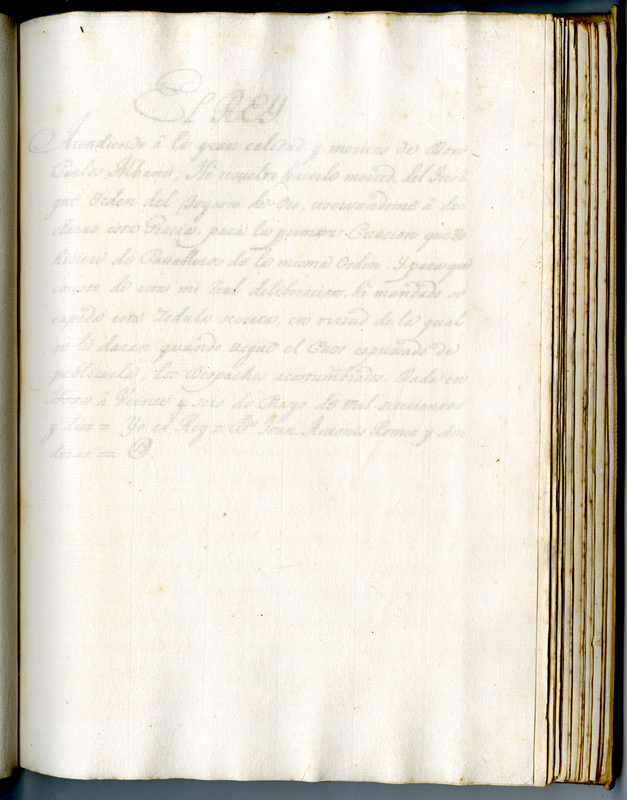 El REY
Atendiendo â la gran calidad y meritos de Don
Carlos Albani; He resuelto hacerle merced del Insi
gne Orden del Toyson de Oro, reservandome â de
clarar esta Gracia, para la primera Creacion que Yo
hiciere de Cavalleros de la misma Orden. Y para que
conste de esta mi Real deliberacion, hê mandado se
expida esta Zedula secreta, en virtud de la qual
se le daran, quando llegue el Caso expresado de
publicarla, los Despachos acostumbrados. Dada en
â Veinte y seis de Mayo de mil setecientos
y diez = Yo el Rey = Dn Juan Antonio Romeo y An
deras =